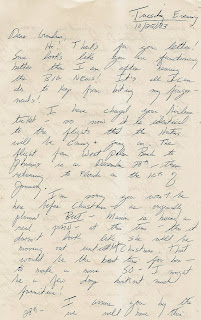 Tuesday Evening
10/25/83
Dear Grandma,
Hi! Thanks for your letter!
Sure looks like you are functioning
better than I am after
the BIG NEWS! It's all I can
do to keep from biting my finger-
nails!
I have changed your airline
ticket so now it is identical
to the flights that the
will be going on. The
flight from West Palm Beach to
is on December 28th - then
returning to Florida on the 10th of
January.
I'm sorry you won't be
here before Christmas as originally
planned - But - Mama is having a
at this time - & it
doesn't look like she will be
moving out until Christmas. That
would be the best time for her -
to make a move. SO - I might
be a few days without much
furniture!
I assume you by the
we will have this